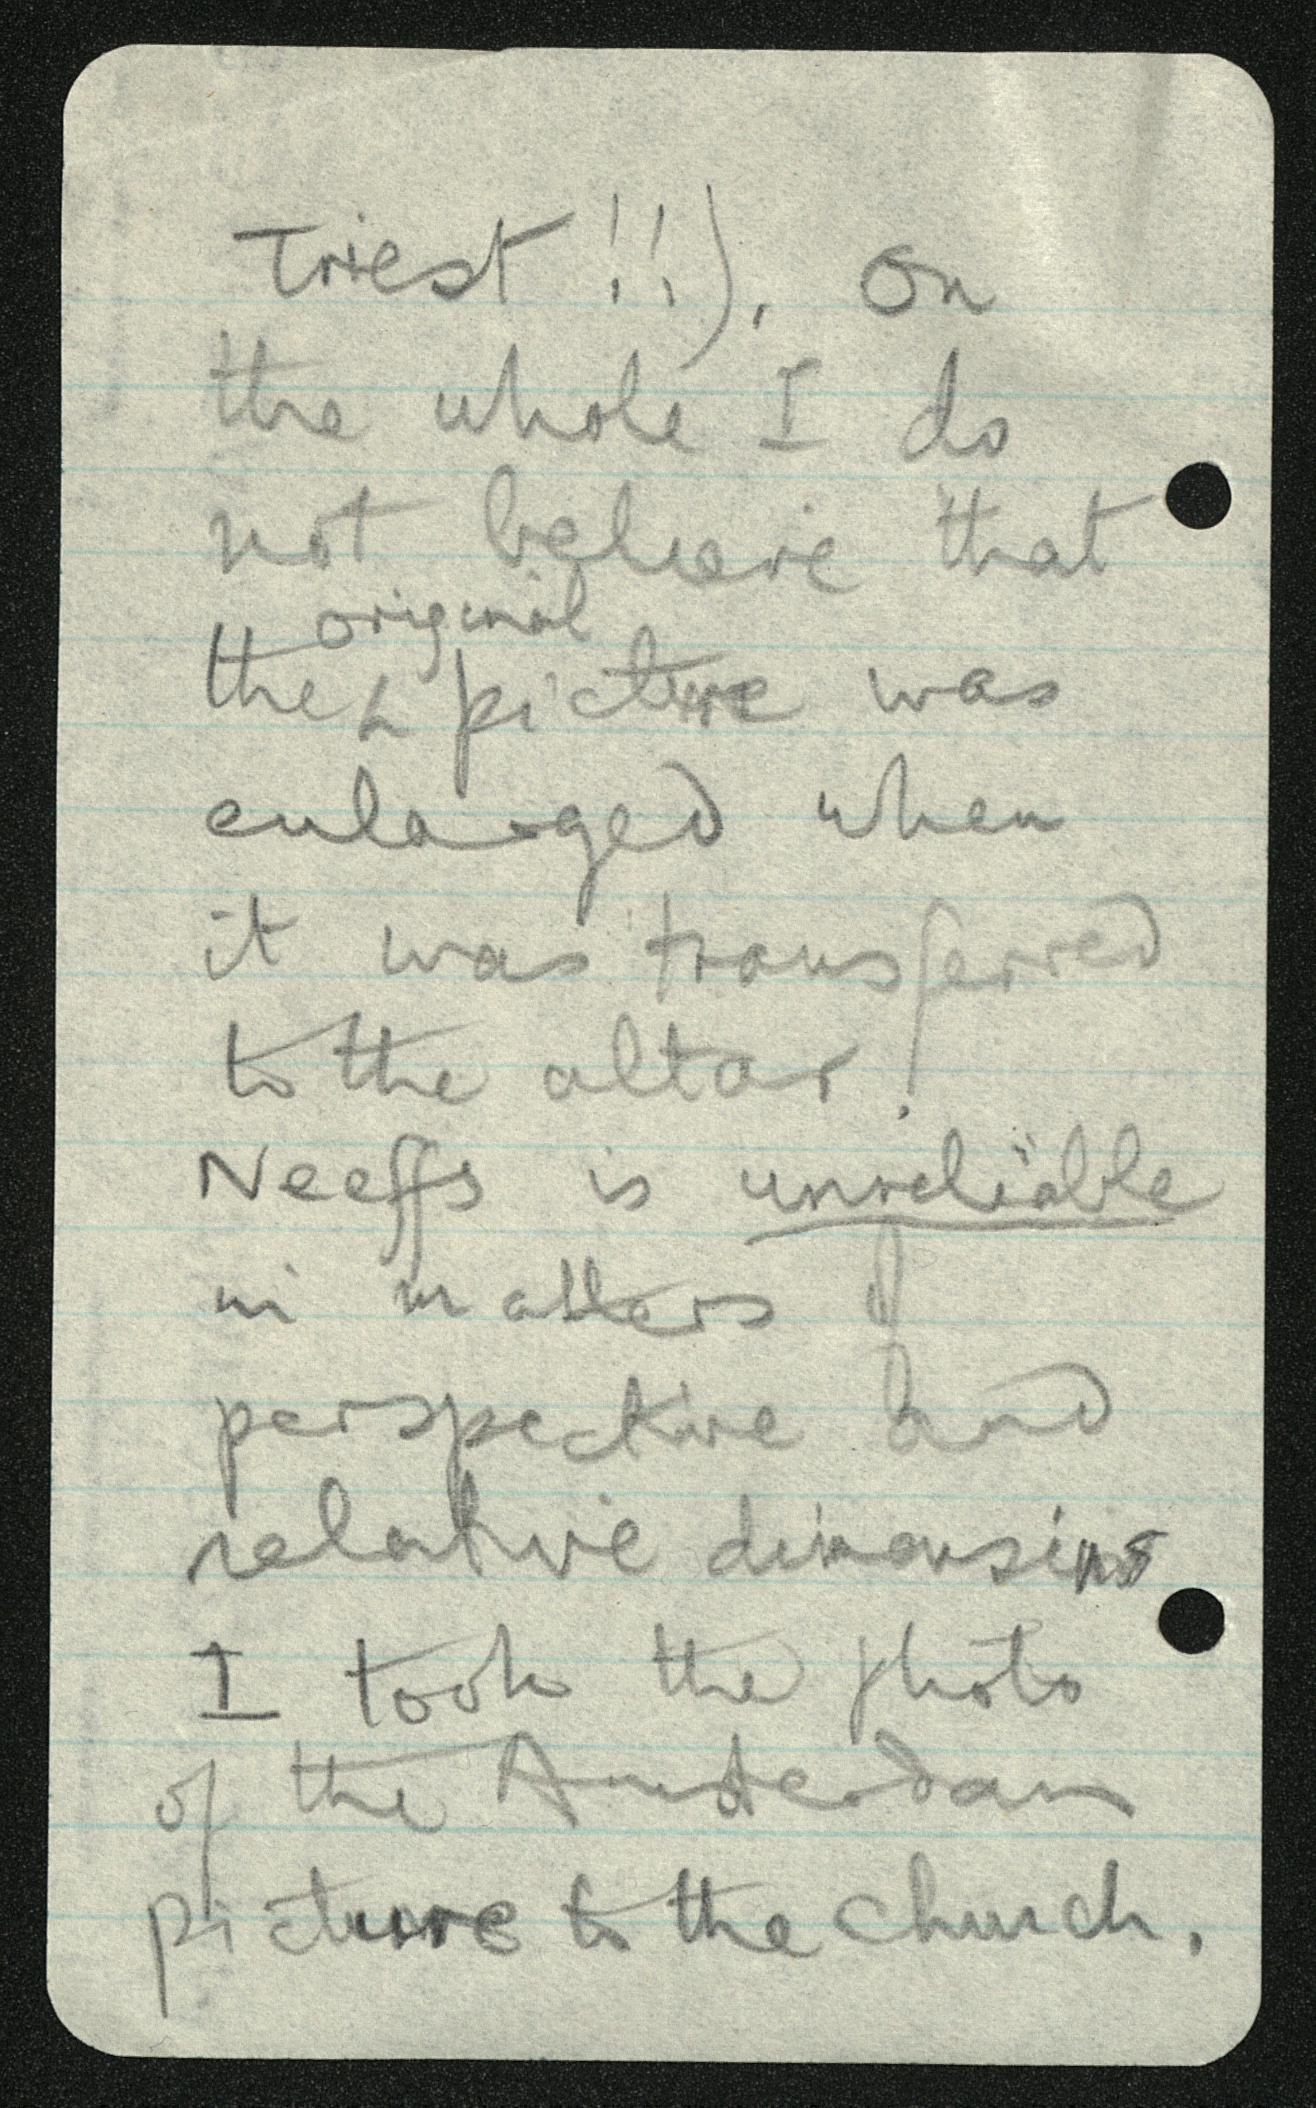 Triest!!). On
the whole I do
not believe that
original
the picture was
enlarged when
it was transferred
to the altar!
Neeffs is unreliable
in matters of
perspective and
relative dimensions
I took the photo
of the Amsterdam
picture to the church.